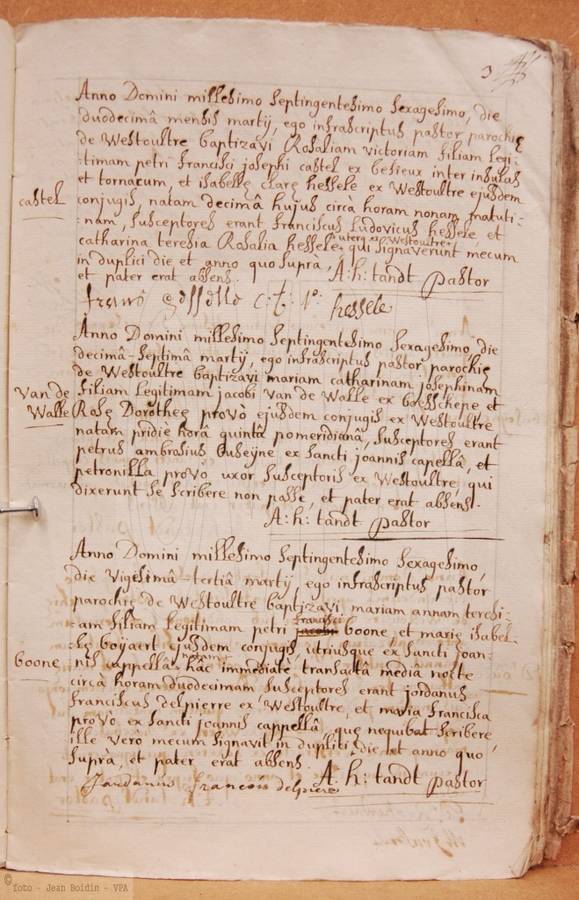 3
Anno Domini millesimo Septingentesimo Sexagesimo, die
duodecimâ mensis martij, ego infrascriptus pastor parochię
de Westoultre baptizavi Rosaliam victoriam filiam legi-
timam petri francisci josephi castel ex besieux inter insulas
et tornacum, et isabellę clarę hessele ex Westoultre ejusdem
castel
conjugis, natam decimâ hujus circà horam nonam matuti-
nam, susceptores erant franciscus Ludovicus hessele, et
catharina teresia Rosalia hessele uterq ex Westoultre qui signaverunt mecum
in duplici die et anno quo suprà,
et pater erat absens.
A: h: tandt pastor
hessele
Anno Domini millesimo Septingentesimo Sexagesimo, die
decimâ-Septimâ martij, ego infrascriptus pastor parochię
de Westoultre baptizavi mariam catharinam josephinam
van de
Walle
filiam Legitimam jacobi van de Walle ex boesschepe et
Rosę Dorotheę provó ejusdem conjugis ex Westoultre
natam pridie horâ quintâ pomeridianâ, susceptores erant
petrus ambrosius ex sancti joannis capellâ, et
petronilla provo uxor susceptoris ex Westoultre, qui
dixerunt se scribere non posse, et pater erat absens.
A: h: tandt pastor
Anno Domini millesimo Septingentesimo Sexagesimo,
die vigesimâ-tertiâ martij, ego infrascriptus pastor
parochię de Westoultre baptizavi mariam annam teresi-
am filiam legitimam petri francisci boone, et marię isabel-
lę boijaert ejusdem conjugis, utriusque ex sancti joan-
boone
nis cappellâ hâc immediatè transactâ mediâ nocte
circà horam duodecimam susceptores erant jordanus
franciscus delpierre ex Westoultre, et maria francisca
provo ex sancti joannis cappellâ, quę nequibat scribere
ille verò mecum signavit in duplici die et anno quo
suprà, et pater erat absens.
A: h: tandt pastor
Jordanus françois delpierre
© foto - Jean Boidin - VPA